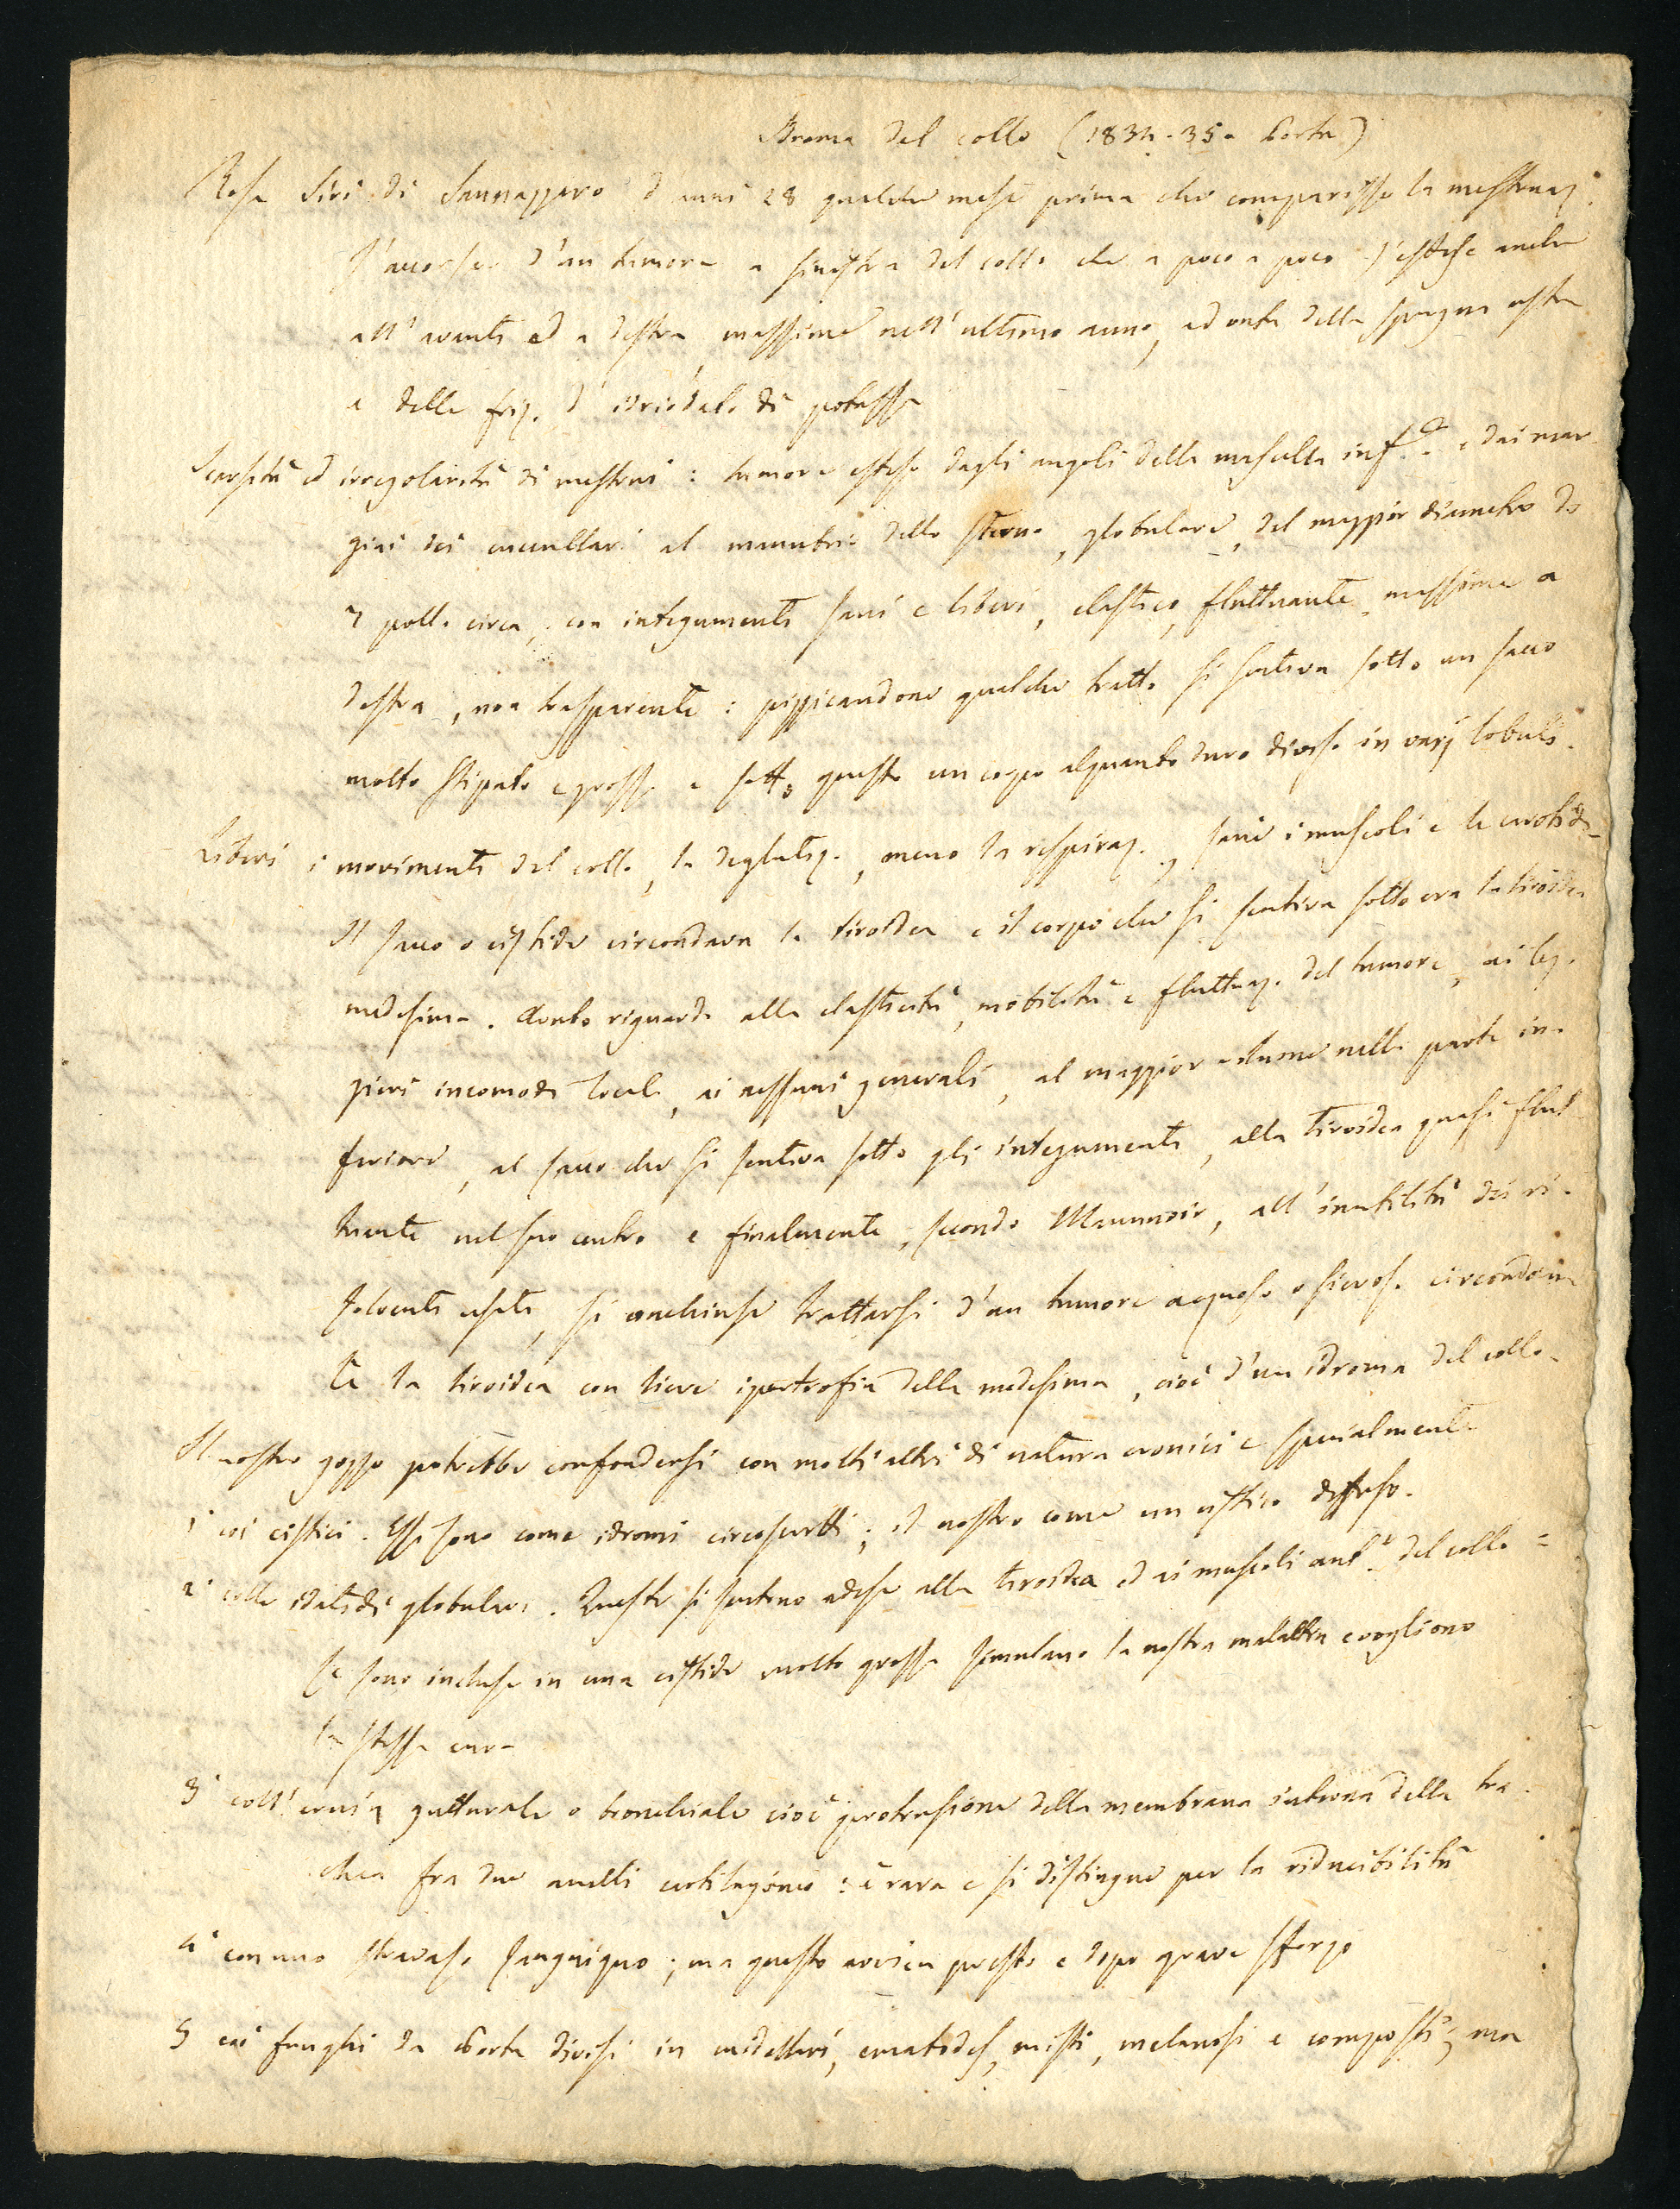 Idroma del collo (1834-35 - Porta)
Rosa Siri di Sannazzaro d'anni 28 qualche mese prima che comparisse la mestruaz.
s'accorse d'un tumore a sinistra del collo che a poco a poco s'estese anche
all'avanti ed a destra, massime nell'ultimo anno, ad onta della spugna usta
e delle friz. d'idriodato di potassa
Scarsità ed irregolarità di mestrui: tumore esteso dagli angoli della mascella inf.e e dai mar-
gini dei cucullari al manubrio dello sterno, globulare, del maggior diametro di
7 poll. circa, con integumenti sani e liberi, elastico, fluttuante massime a
destra, non trasparente: pizzicandone qualche tratto si sentiva sotto un sacco
molto stipato e grosso e sotto questo un corpo alquanto duro diviso in varj lobuli.
Liberi i movimenti del collo, la deglutiz., meno la respiraz., sani i muscoli e le carotidi -
Il sacco o cistide circondava la tiroidea e il corpo che si sentiva sotto era la tiroidea
medesima. Avuto riguardo alla elasticità, mobilità e fluttuaz. del tumore, ai leg-
gieri incomodi locali, ai nessuni generali, al maggior volume nella parte in-
feriore, al sacco che si sentiva sotto gli integumenti, alla tiroidea quasi flut-
tuante nel suo centro e finalmente, secondo Maunoir, all'inutilità dei ri-
solventi usati, si conchiuse trattarsi d'un tumore acquoso o sieroso circondan-
te la tiroidea con lieve ipertrofia della medesima, cioè d'un idroma del collo -
Il nostro gozzo potrebbe confondersi con molti altri di natura cronici e specialmente
1° coi cistici. Essi sono come idromi circoscritti; il nostro come un cistico diffuso.
2° colle idatidi globulari. Queste si sentono adese alla tiroidea ed ai muscoli ant.i del collo =
se sono incluse in una cistide molto grossa simulano la nostra malattia e vogliono
la stessa cura
3° coll'ernia gutturale o bronchiale cioè protrusione della membrana interna della tra-
chea fra due anelli cartilaginei: è rara e si distingue per la riducibilità
4° con uno stravaso sanguigno; ma questo avviene presto e dopo grave sforzo
5 coi funghi da Porta divisi in midollari, ematodes, misti, melanosi e composti; ma